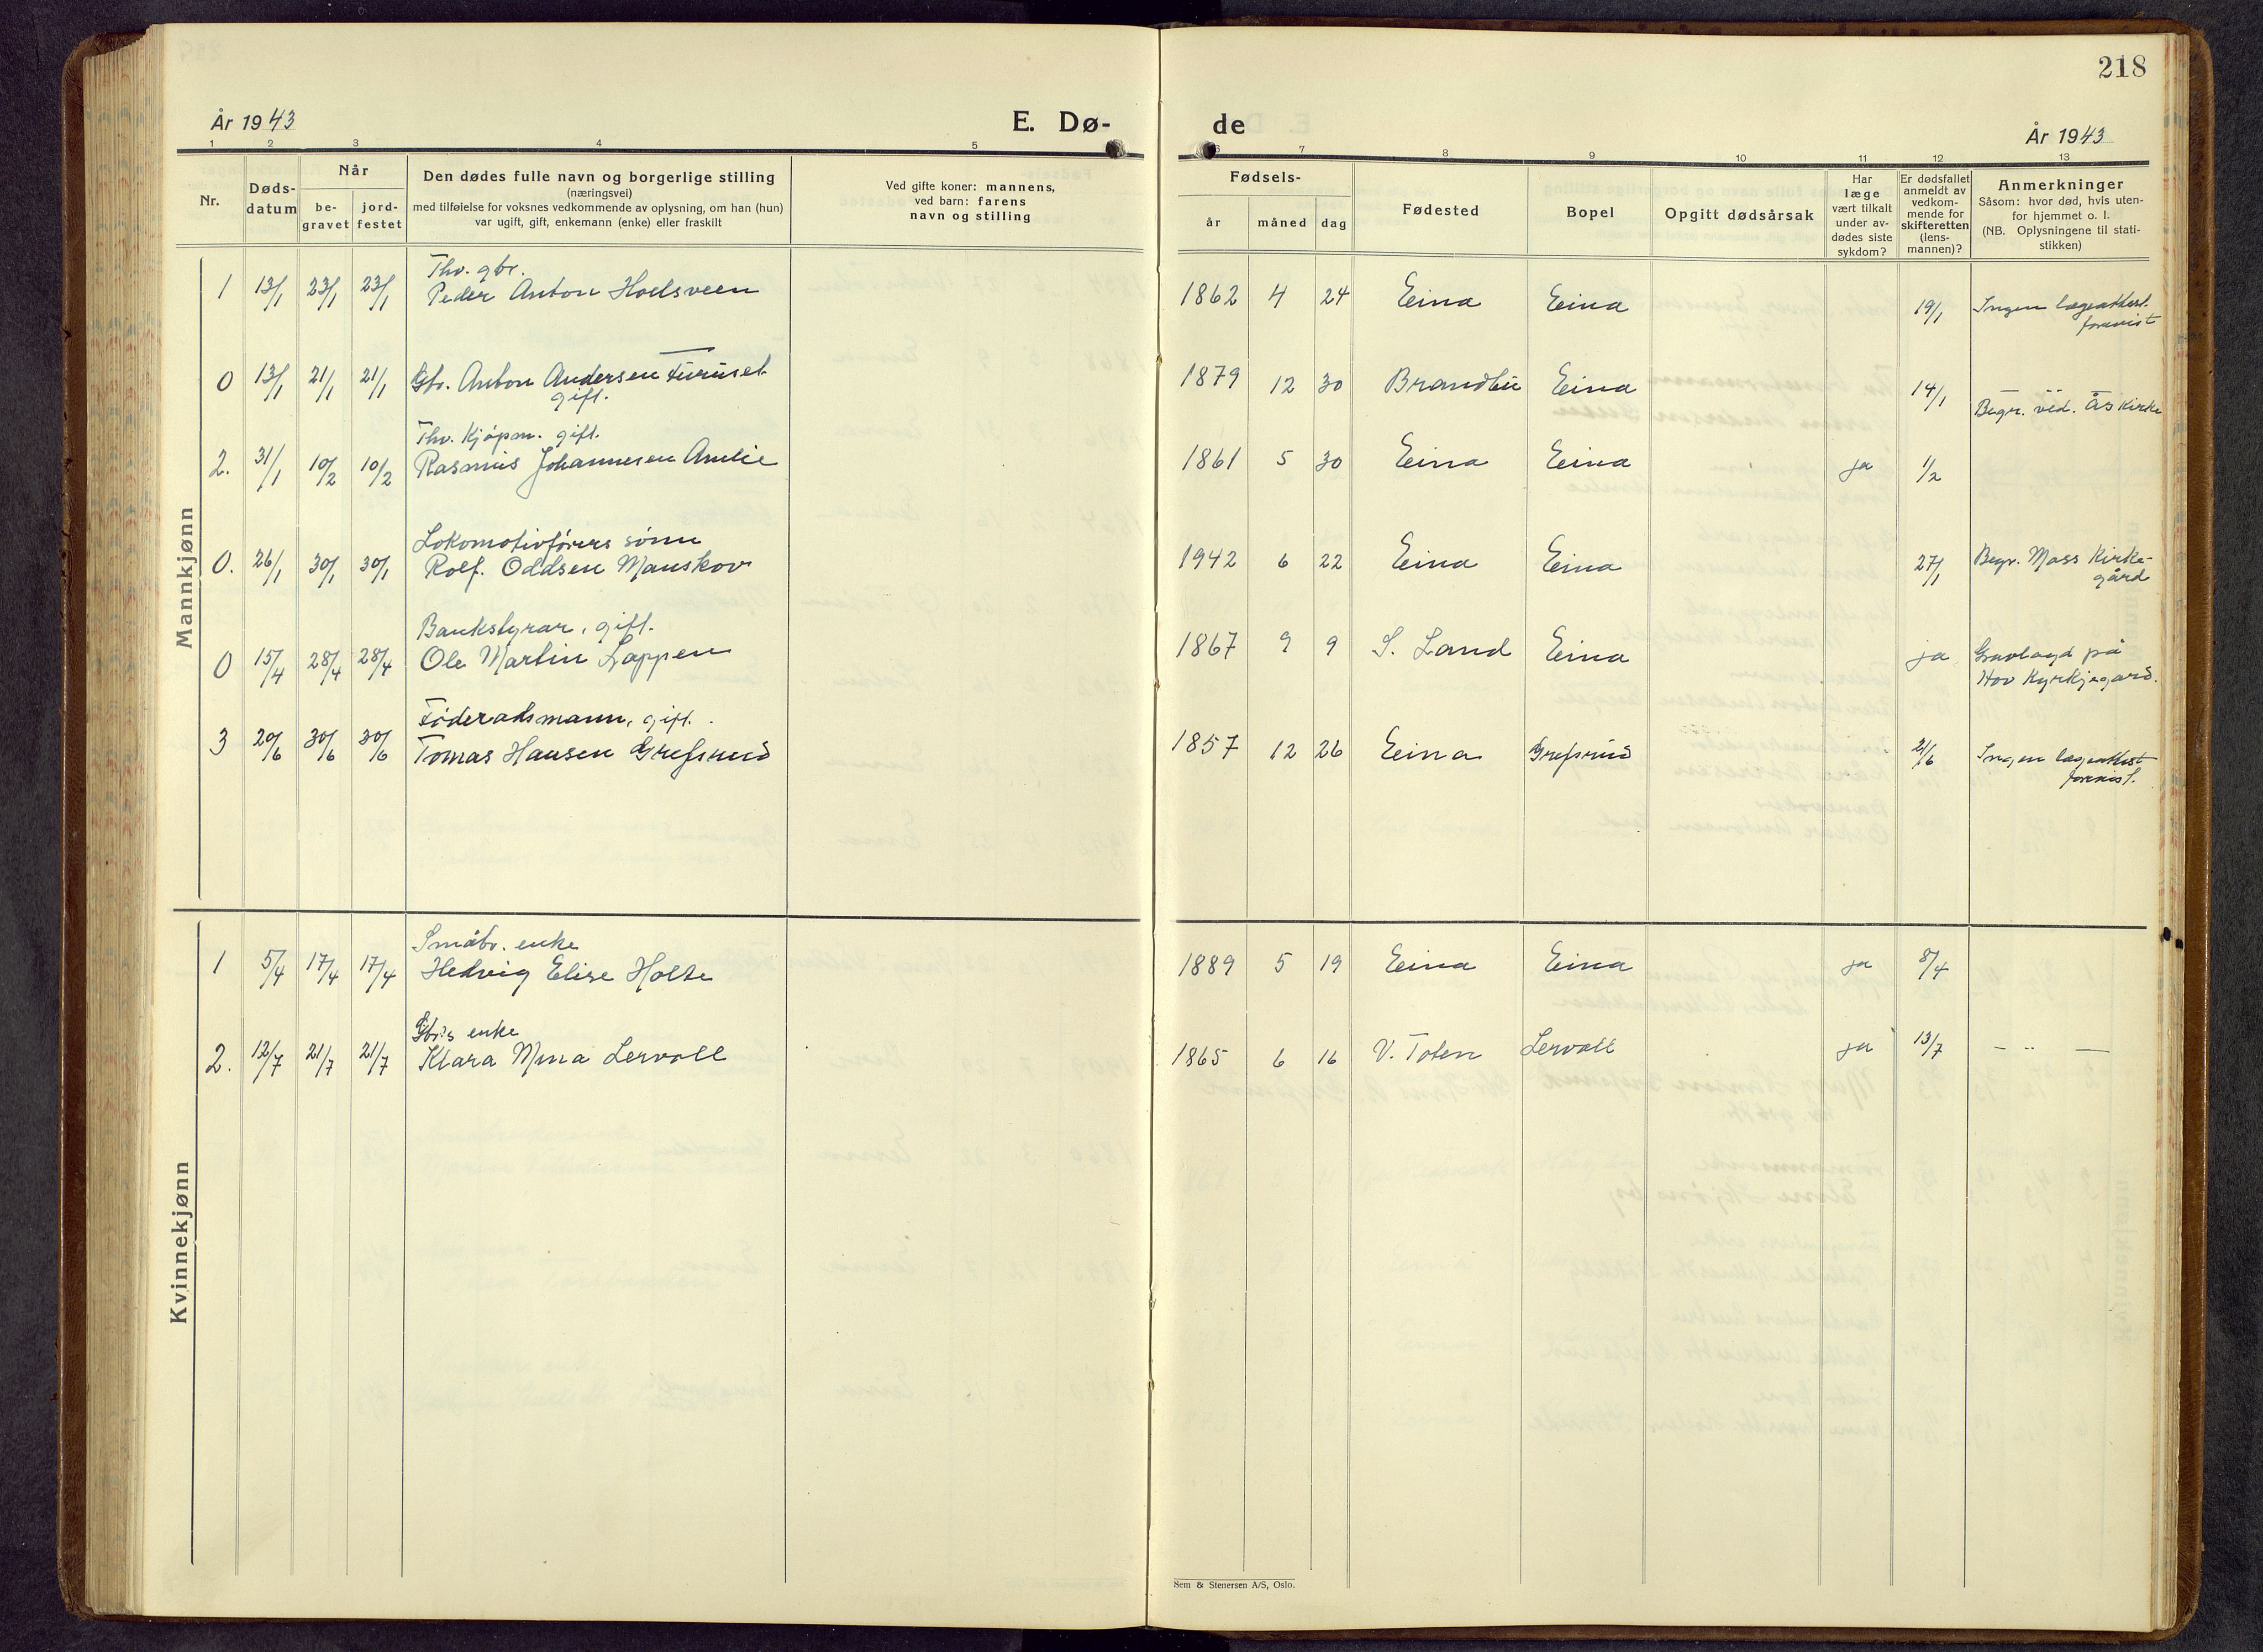 218
År 1943
E. Dø-
de
År 1943
1 2 3 4 5
6 7 8 9 10 11 12 13
Nr.
Døds-
datum
Når
be-
gravet
jord-
festet
Den dødes fulle navn og borgerlige stilling
(næringsvei)
med tilføielse for voksnes vedkommende av oplysning, om han (hun)
var ugift, gift, enkemann (enke) eller fraskilt
Ved gifte koner: mannens,
ved barn: farens
navn og stilling
Fødsels-
år måned dag
Fødested
Bopel
Opgitt dødsårsak
Har
læge
vært tilkalt
under av-
dødes siste
sykdom?
Er dødsfallet
anmeldt av
vedkom-
mende for
skifteretten
(lens-
mannen)?
Anmerkninger
Såsom: hvor død, hvis uten-
for hjemmet o. l.
(NB. Oplysningene til stati-
stikken)
Mannkjønn
Thv. gbr.
1 13/1 23/1 23/1 Peder Anton Hoelsveen 1862 4 24 Eina Eina 19/1 Ingen lægeattest
forevist
0 13/1 21/1 21/1 Gbr. Anton Andersen Furuset 1879 12 30 Brandbu Eina 14/1 Begr. ved. Ås Kirke
gift.
Thv. Kjøpm. gift.
2. 31/1 10/2 10/2 Rasmus Johannesen Amlie 1861 5 30 Eina Eina ja 1/2
Lokomotivførers sønn
0. 26/1 30/1 30/1 Rolf. Oddsen Manskov 1942 6 22 Eina Eina 27/1 Begr. Moss Kirke-
gård
Bankstyrar, gift.
0 15/4 28/4 28/4 Ole Martin Lappen 1867 9 9 S. Land Eina ja Gravlagd på
Hov Kyrkjegard.
Føderadsmann, gift.
3 20/6 30/6 30/6 Tomas Hansen Grefsrud 1857 12 26 Eina Grefsrud 21/6 Ingen lægeattest
forevist.
Kvinnekjønn
Småbr. enke
1 5/4 17/4 17/4 Hedvig Elise Holte 1889 5 19 Eina Eina ja 8/4
Gbr's enke
2. 12/7 21/7 21/7 Klara Mina Lervoll 1865 6 16 V. Toten Lervoll ja 13/7 — " —
Sem & Stenersen A/S, Oslo.